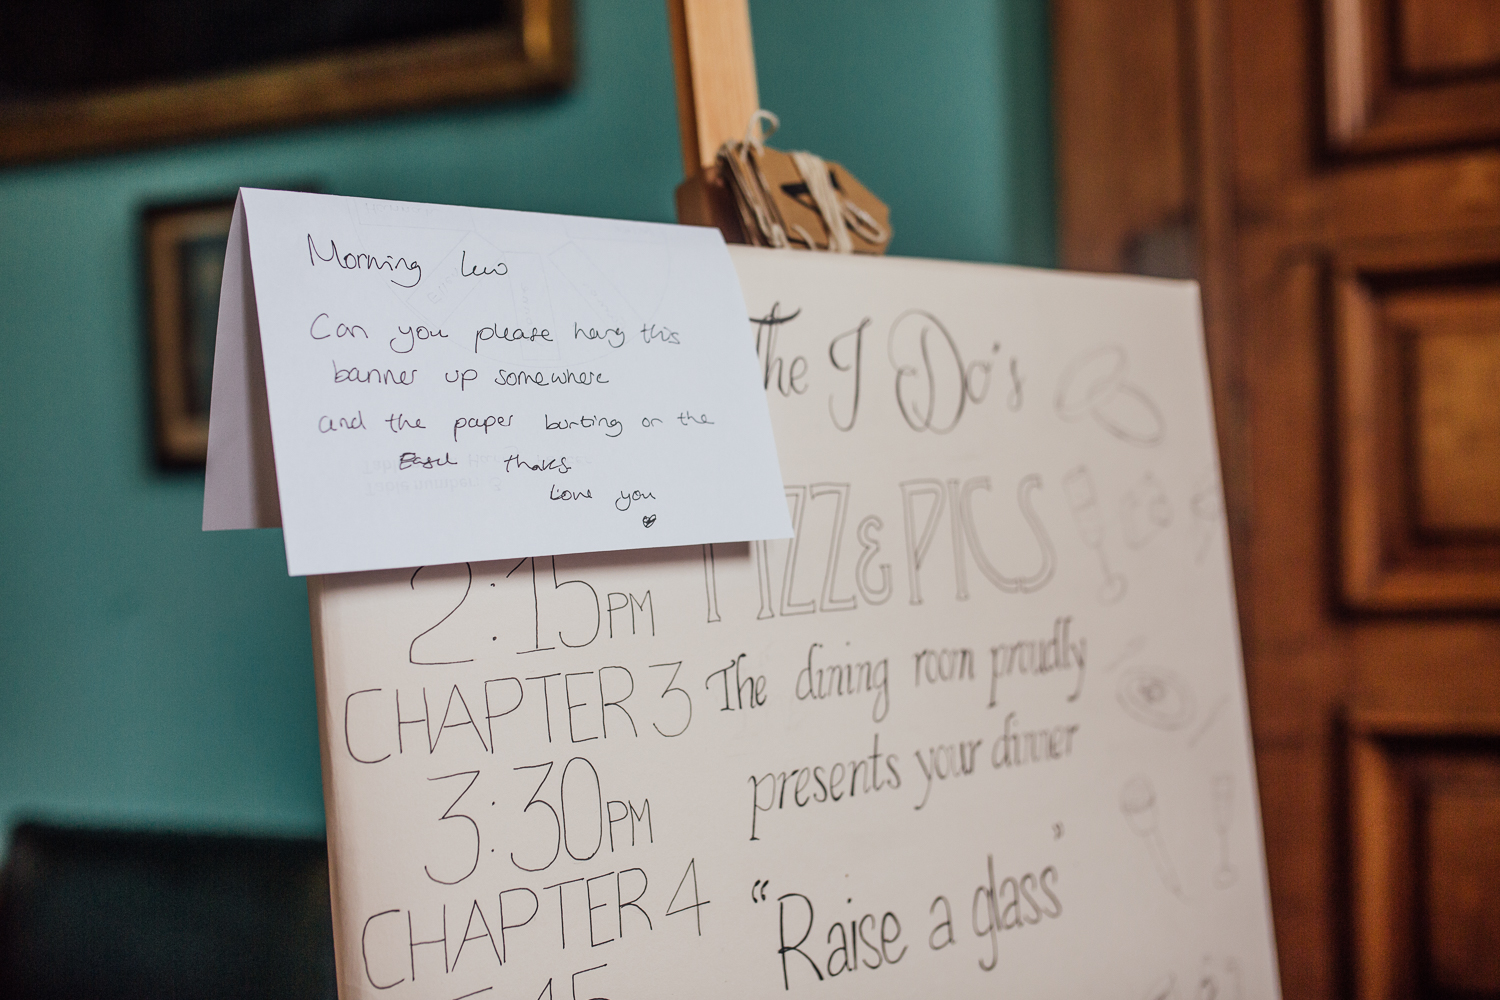 Morning
Can you please hang this
banner up somewhere
and the paper bunting on the
Easel thanks
Love you
The I Do's
2:15PM FIZZ & PICS
CHAPTER 3 The dining room proudly
3:30PM presents your dinner
CHAPTER 4 "Raise a glass"